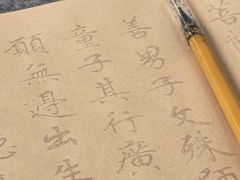 善
善男子文殊師
童子其行廣
願無邊出生